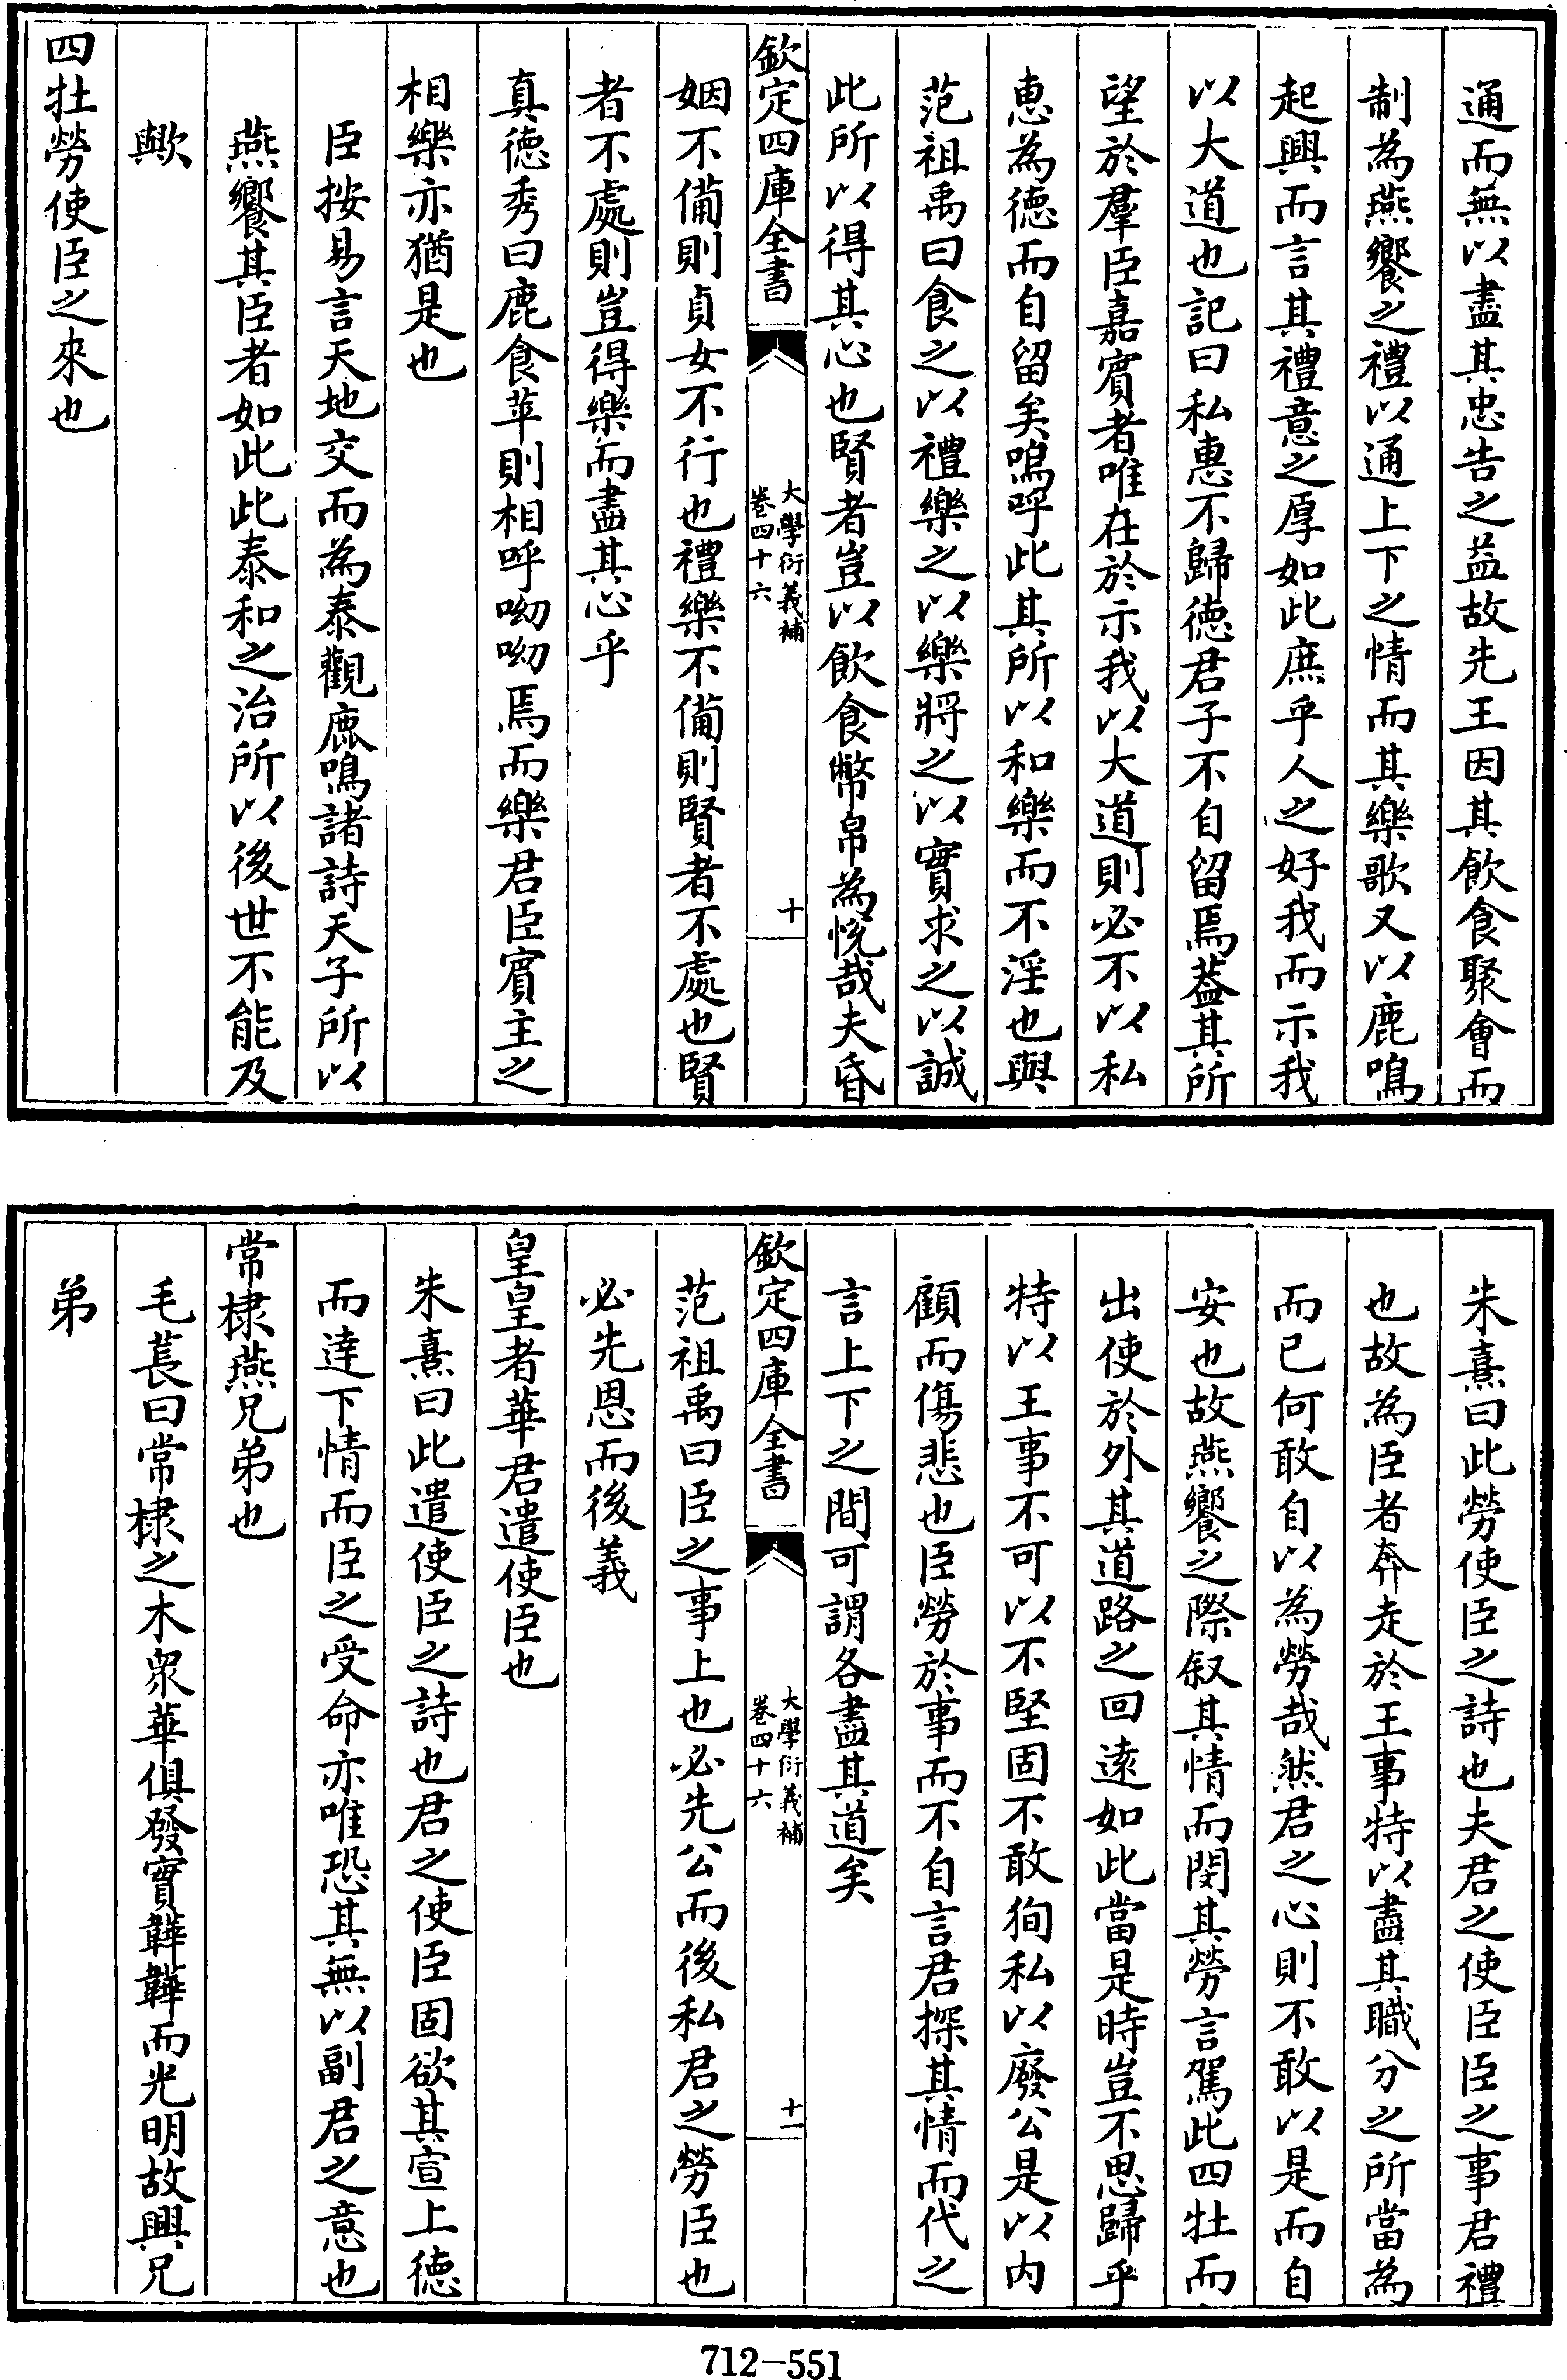 通而無以盡其忠告之益故先王因其飲食聚會而
制為燕饗之禮以通上下之情而其樂歌又以鹿鳴
起興而言其禮意之厚如此庶乎人之好我而示我
以大道也記曰私惠不歸德君子不自留焉葢其所
望於羣臣嘉賓者唯在於示我以大道則必不以私
惠為德而自留矣嗚呼此其所以和樂而不淫也與
范祖禹曰食之以禮樂之以樂將之以實求之以誠
此所以得其心也賢者豈以飲食幣帛為悅哉夫昏
欽定四庫全書
大學衍義補
卷四十六
十
姻不備則貞女不行也禮樂不備則賢者不處也賢
者不處則豈得樂而盡其心乎
真德秀曰鹿食苹則相呼呦呦焉而樂君臣賓主之
相樂亦猶是也
臣按易言天地交而為泰觀鹿鳴諸詩天子所以
燕饗其臣者如此此泰和之治所以後世不能及
歟
四牡勞使臣之來也
朱熹曰此勞使臣之詩也夫君之使臣臣之事君禮
也故為臣者奔走於王事特以盡其職分之所當為
而已何敢自以為勞哉然君之心則不敢以是而自
安也故燕饗之際叙其情而閔其勞言駕此四牡而
出使於外其道路之回逺如此當是時豈不思歸乎
特以王事不可以不堅固不敢狥私以廢公是以内
顧而傷悲也臣勞於事而不自言君探其情而代之
言上下之間可謂各盡其道矣
欽定四庫全書
大學衍義補
卷四十六
十一
范祖禹曰臣之事上也必先公而後私君之勞臣也
必先恩而後義
皇皇者華君遣使臣也
朱熹曰此遣使臣之詩也君之使臣固欲其宣上德
而逹下情而臣之受命亦唯恐其無以副君之意也
常棣燕兄弟也
毛萇曰常棣之木衆華俱發實韡韡而光明故興兄
弟
712-551